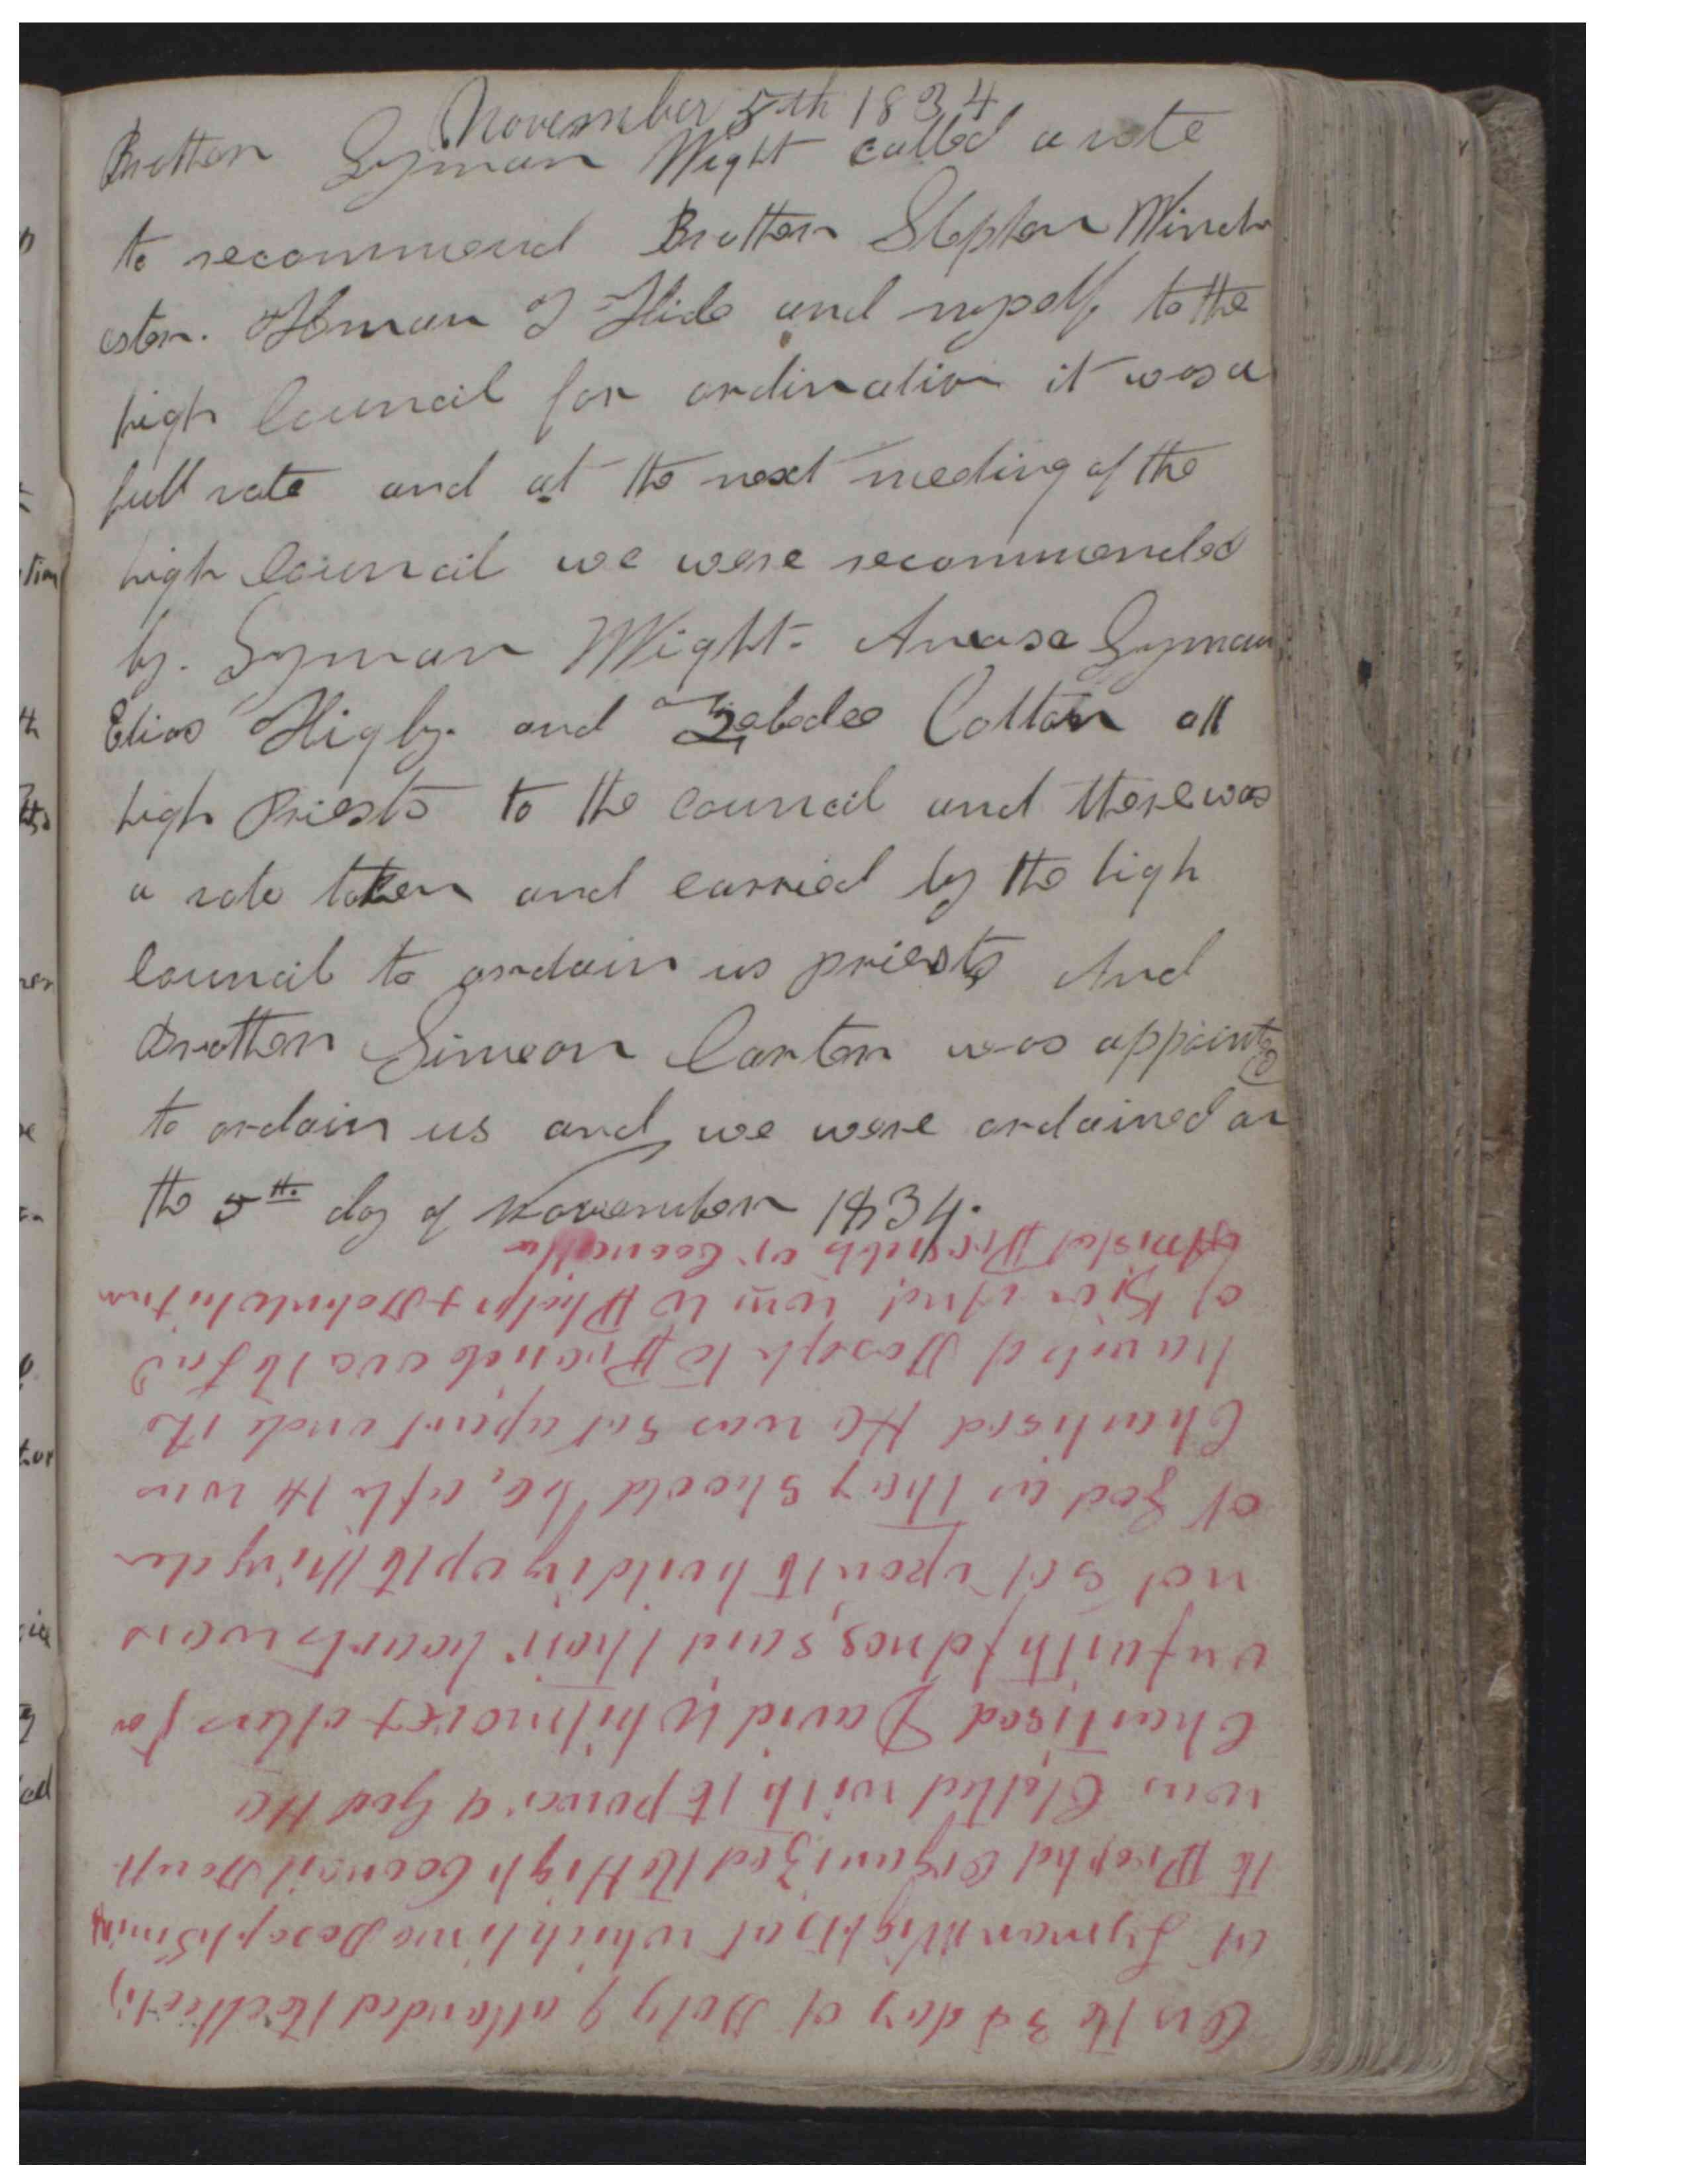 November 5th 1834
Brother Lyman Wight called a vote
to recommend Brother Stephen Winch
ester. Heman T Hide and myself to the
high Council for ordination it was a
full vote and at the next meeting of the
high Council we were recommended
by. Lyman Wight. Amasa Lyman
Elias Higby. and Zebedee Colton all
high Priests to the council and there was
a vote taken and carried by the high
Council to ordain us priests And
Brother Simeon Carter was appointed
to ordain us and we were ordained on
the 5th day of November 1834.
On the 3d day of July I attended the Meeting
at Lyman Wights at which time Joseph Smith
the Prophet Organized the High Council Joseph
was Clothed with the power of God He
Chastised David Whitmore & others for
unfaithfdnes, said their hearts were
not Set upon the building up the Kingdom
of God as they should be, after H was
Chastised He was Set apart unde the
hands of Joseph to Preside over the
of Zion And W W Phelps & John Whitmer